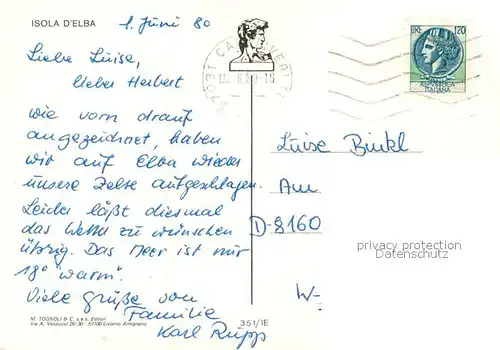 ISOLA D'ELBA
1. Juni 80
Liebe Luise,
lieber Herbert
wie vorn drauf
angezeichnet, haben
wir auf Elba wieder
unsere Zelte aufgeschlagen.
Leider läßt diesmal
das Wetter zu wünschen
übrig. Das Meer ist nur
18° "warm".
Viele Grüße von
Familie
Karl Rupp
M. TOGNOLI & C. s.a.s. Editori
Via A. Vespucci 26/30 - 57100 Livorno Ardignano
351/IE
57031
LIRE 120
REPUBBLICA
ITALIANA
Luise Binkl
Am
D-8160
W-
privacy protection
Datenschutz